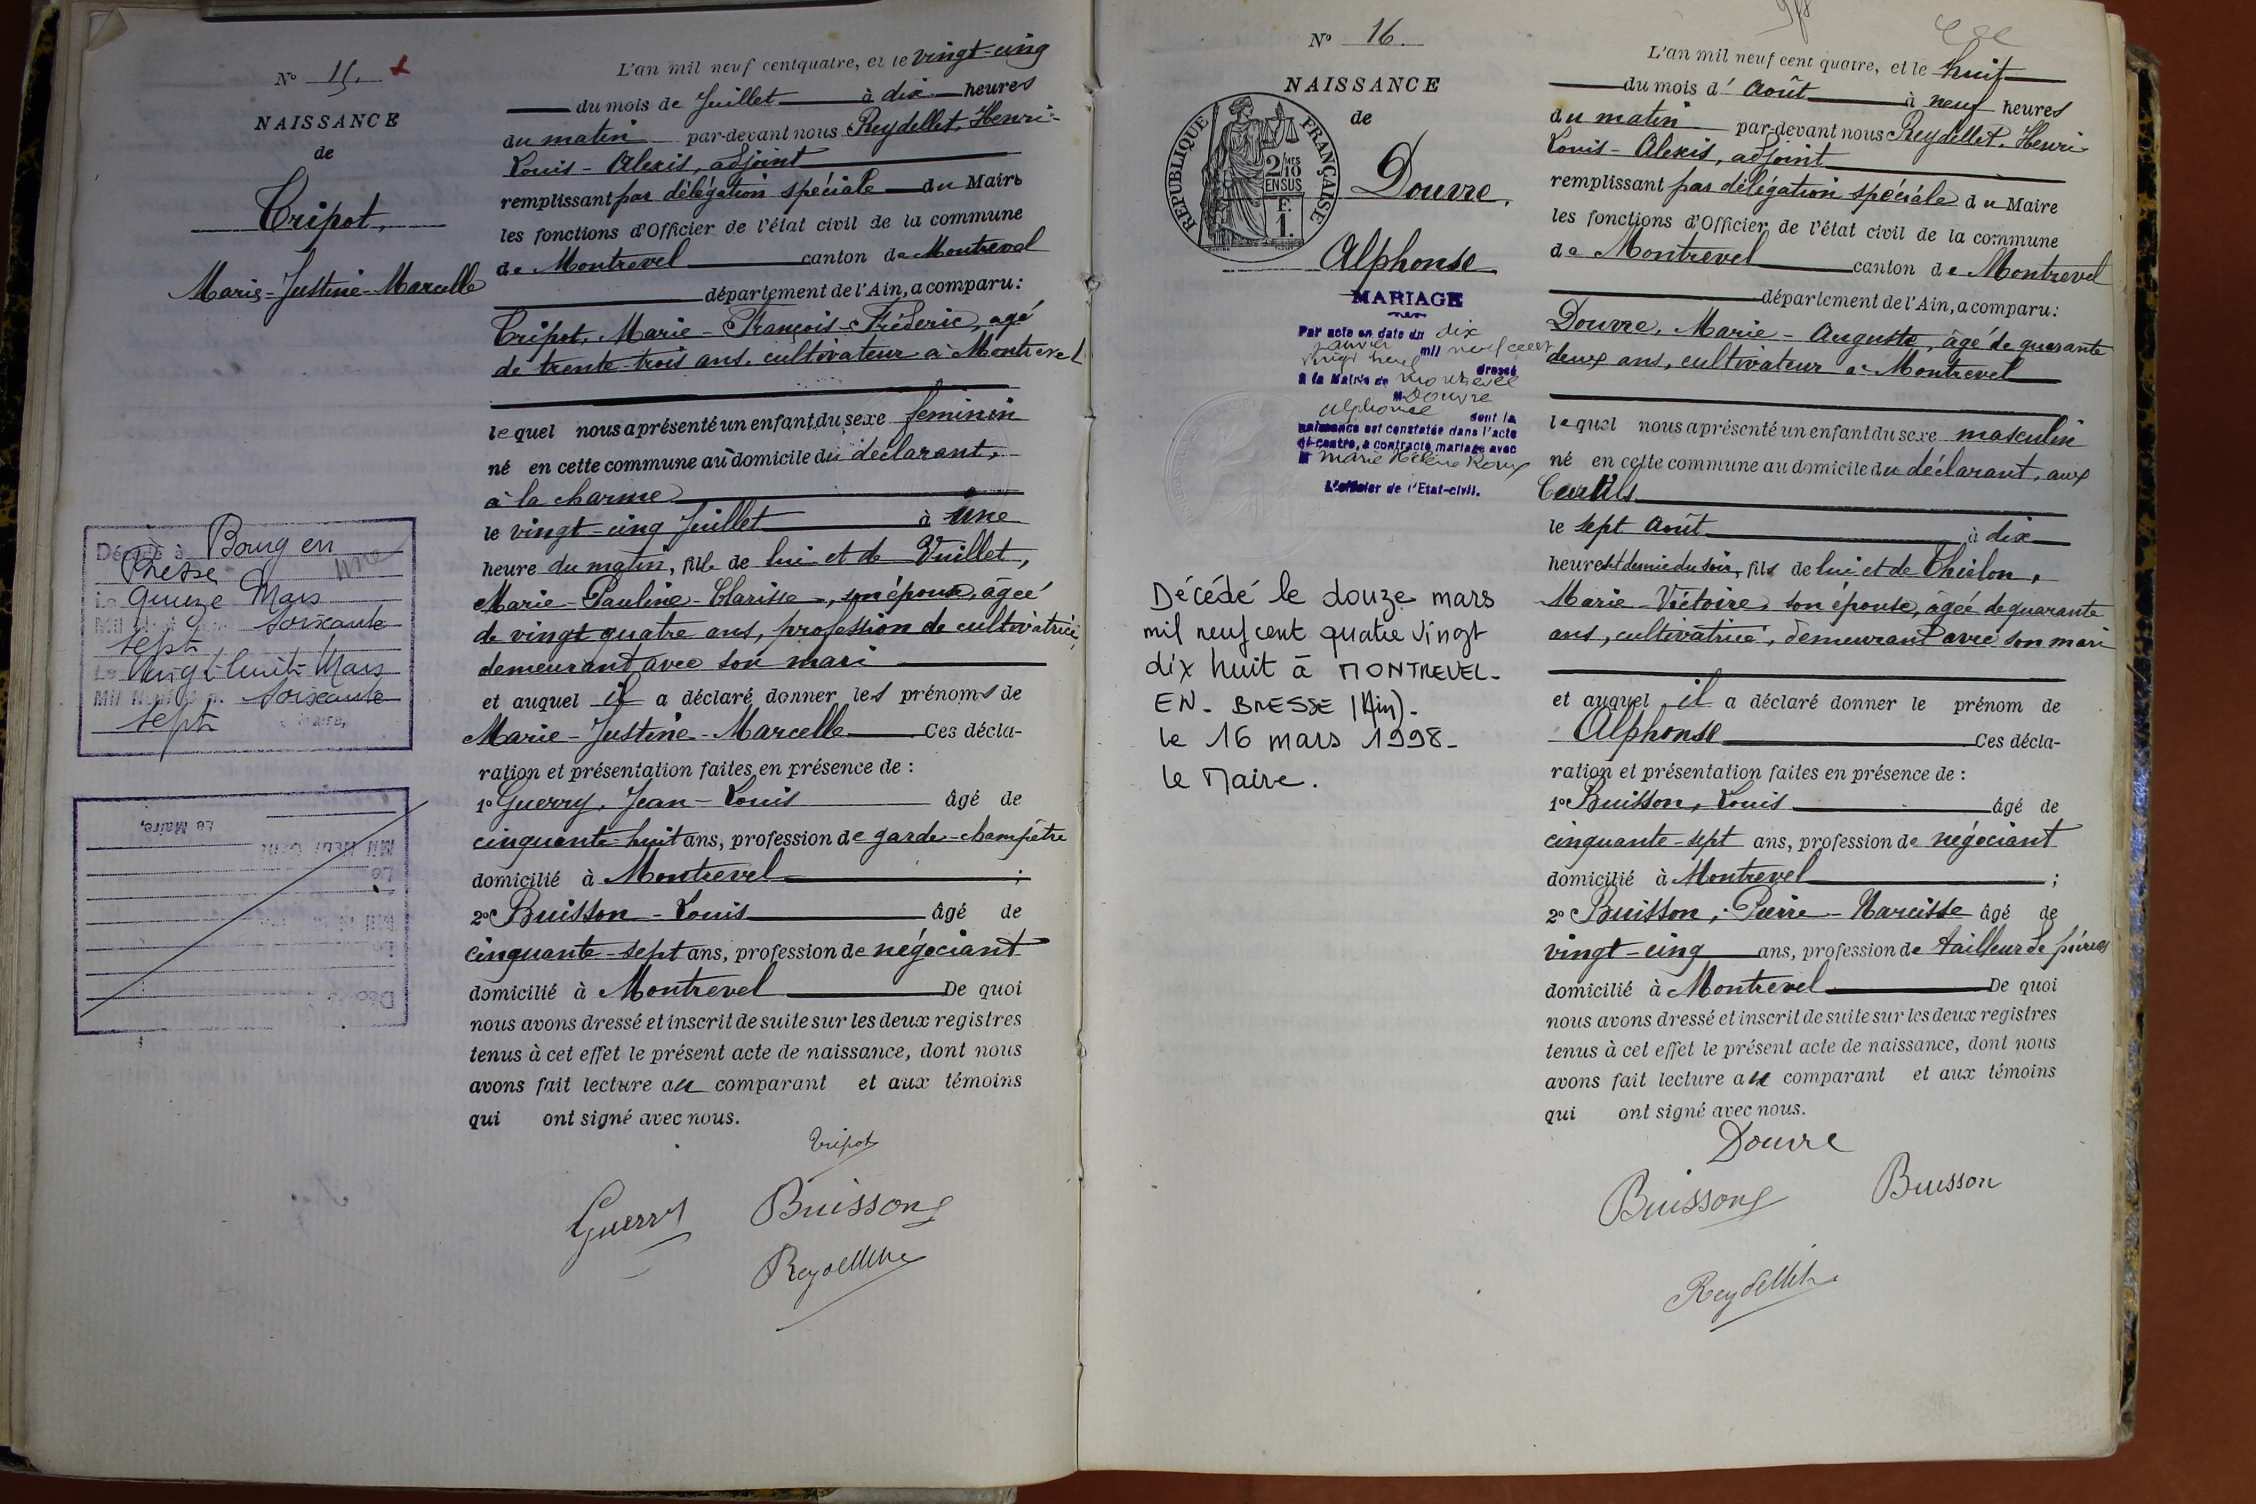 N° 15.
NAISSANCE
de
Tripot,
Marie-Justine-Marcelle
Décédée à Bourg en
Bresse
Le quinze Mars
Mil Neuf Cent soixante
sept
Le Vingt-huit Mars
Mil Neuf Cent soixante
sept
Le Maire,
Le Maire,
Mil Neuf Cent
Le
Mil Neuf Cent
Le
Décédé à
L'an mil neuf cent quatre, et le vingt-cinq
du mois de Juillet à dix heures
du matin par-devant nous Reydellet, Henri-
Louis-Alexis, adjoint
remplissant par délégation spéciale du Maire
les fonctions d'Officier de l'état civil de la commune
de Montrevel canton de Montrevel
département de l'Ain, a comparu:
Tripot, Marie-François-Fréderic, agé
de trente-trois ans, cultivateur à Montrevel
lequel nous a présenté un enfant du sexe feminin
né en cette commune au domicile du déclarant,
à la charme
le vingt-cinq Juillet à une
heure du matin, fille de lui et de Vuillet,
Marie-Pauline-Clarisse, son épouse, âgée
de vingt quatre ans, profession de cultivatrice,
demeurant avec son mari
et auquel il a déclaré donner les prénoms de
Marie-Justine-Marcelle Ces décla-
ration et présentation faites en présence de :
1° Guerry, Jean-Louis âgé de
cinquante-huit ans, profession de garde-champêtre
domicilié à Montrevel ;
2° Buisson-Louis âgé de
cinquante-sept ans, profession de négociant
domicilié à Montrevel De quoi
nous avons dressé et inscrit de suite sur les deux registres
tenus à cet effet le présent acte de naissance, dont nous
avons fait lecture au comparant et aux témoins
qui ont signé avec nous.
Tripot
Guerry Buisson
Reydellet
N° 16.
NAISSANCE
de
RÉPUBLIQUE FRANÇAISE
2/10 MES
EN SUS
F.
1.
Douvre,
Alphonse
MARIAGE
Par acte en date du dix
janvier mil neuf cent
vingt neuf dressé
à la Mairie de Montrevel
M Douvre
Alphonse dont la
naissance est constatée dans l'acte
ci-contre, a contracté mariage avec
M Marie Hélène Roux
L'officier de l'Etat-civil.
Décédé le douze mars
mil neuf cent quatre vingt
dix huit à MONTREVEL-
EN-BRESSE (Ain)-
le 16 mars 1998-
le Maire.
L'an mil neuf cent quatre, et le huit
du mois d'août à neuf heures
du matin par-devant nous Reydellet, Henri-
Louis-Alexis, adjoint
remplissant par délégation spéciale du Maire
les fonctions d'Officier de l'état civil de la commune
de Montrevel canton de Montrevel
département de l'Ain, a comparu:
Douvre, Marie-Auguste, âgé de quarante
deux ans, cultivateur à Montrevel
lequel nous a présenté un enfant du sexe masculin
né en cette commune au domicile du déclarant, aux
Curtils
le sept août à dix
heures et demie du soir, fils de lui et de
Marie-Victoire, son épouse, âgée de quarante
ans, cultivatrice, demeurant avec son mari
et auquel il a déclaré donner le prénom de
Alphonse Ces décla-
ration et présentation faites en présence de :
1° Buisson, Louis âgé de
cinquante-sept ans, profession de négociant
domicilié à Montrevel ;
2° Buisson, Pierre-Narcisse âgé de
vingt-cinq ans, profession de tailleur de pierres
domicilié à Montrevel De quoi
nous avons dressé et inscrit de suite sur les deux registres
tenus à cet effet le présent acte de naissance, dont nous
avons fait lecture au comparant et aux témoins
qui ont signé avec nous.
Douvre
Buisson Buisson
Reydellet